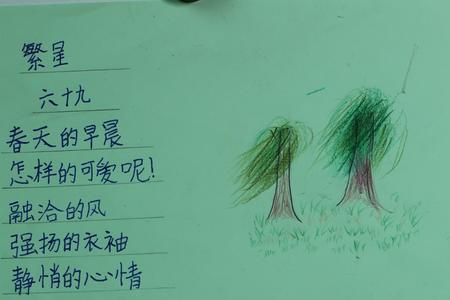 繁星
六十九
春天的早晨
怎样的可爱呢!
融洽的风
强扬的衣袖
静悄的心情